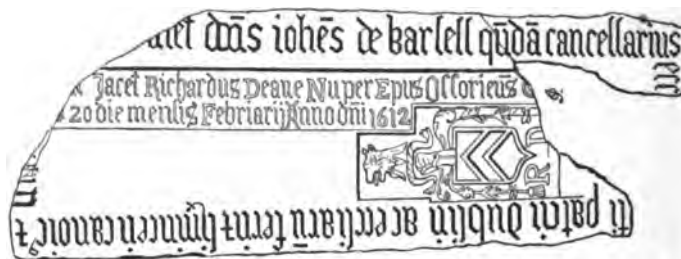 dn̄s iohēs de karlell qn̄dā cancellarius
ecc
Jacet Richardus Deane Nuper Epūs Ossoriēns
20 die mensis Februarij Anno dn̄i 1612
R D
ti patcii dublin ac eccliarū fern ⁊ lymricen canoic ⁊